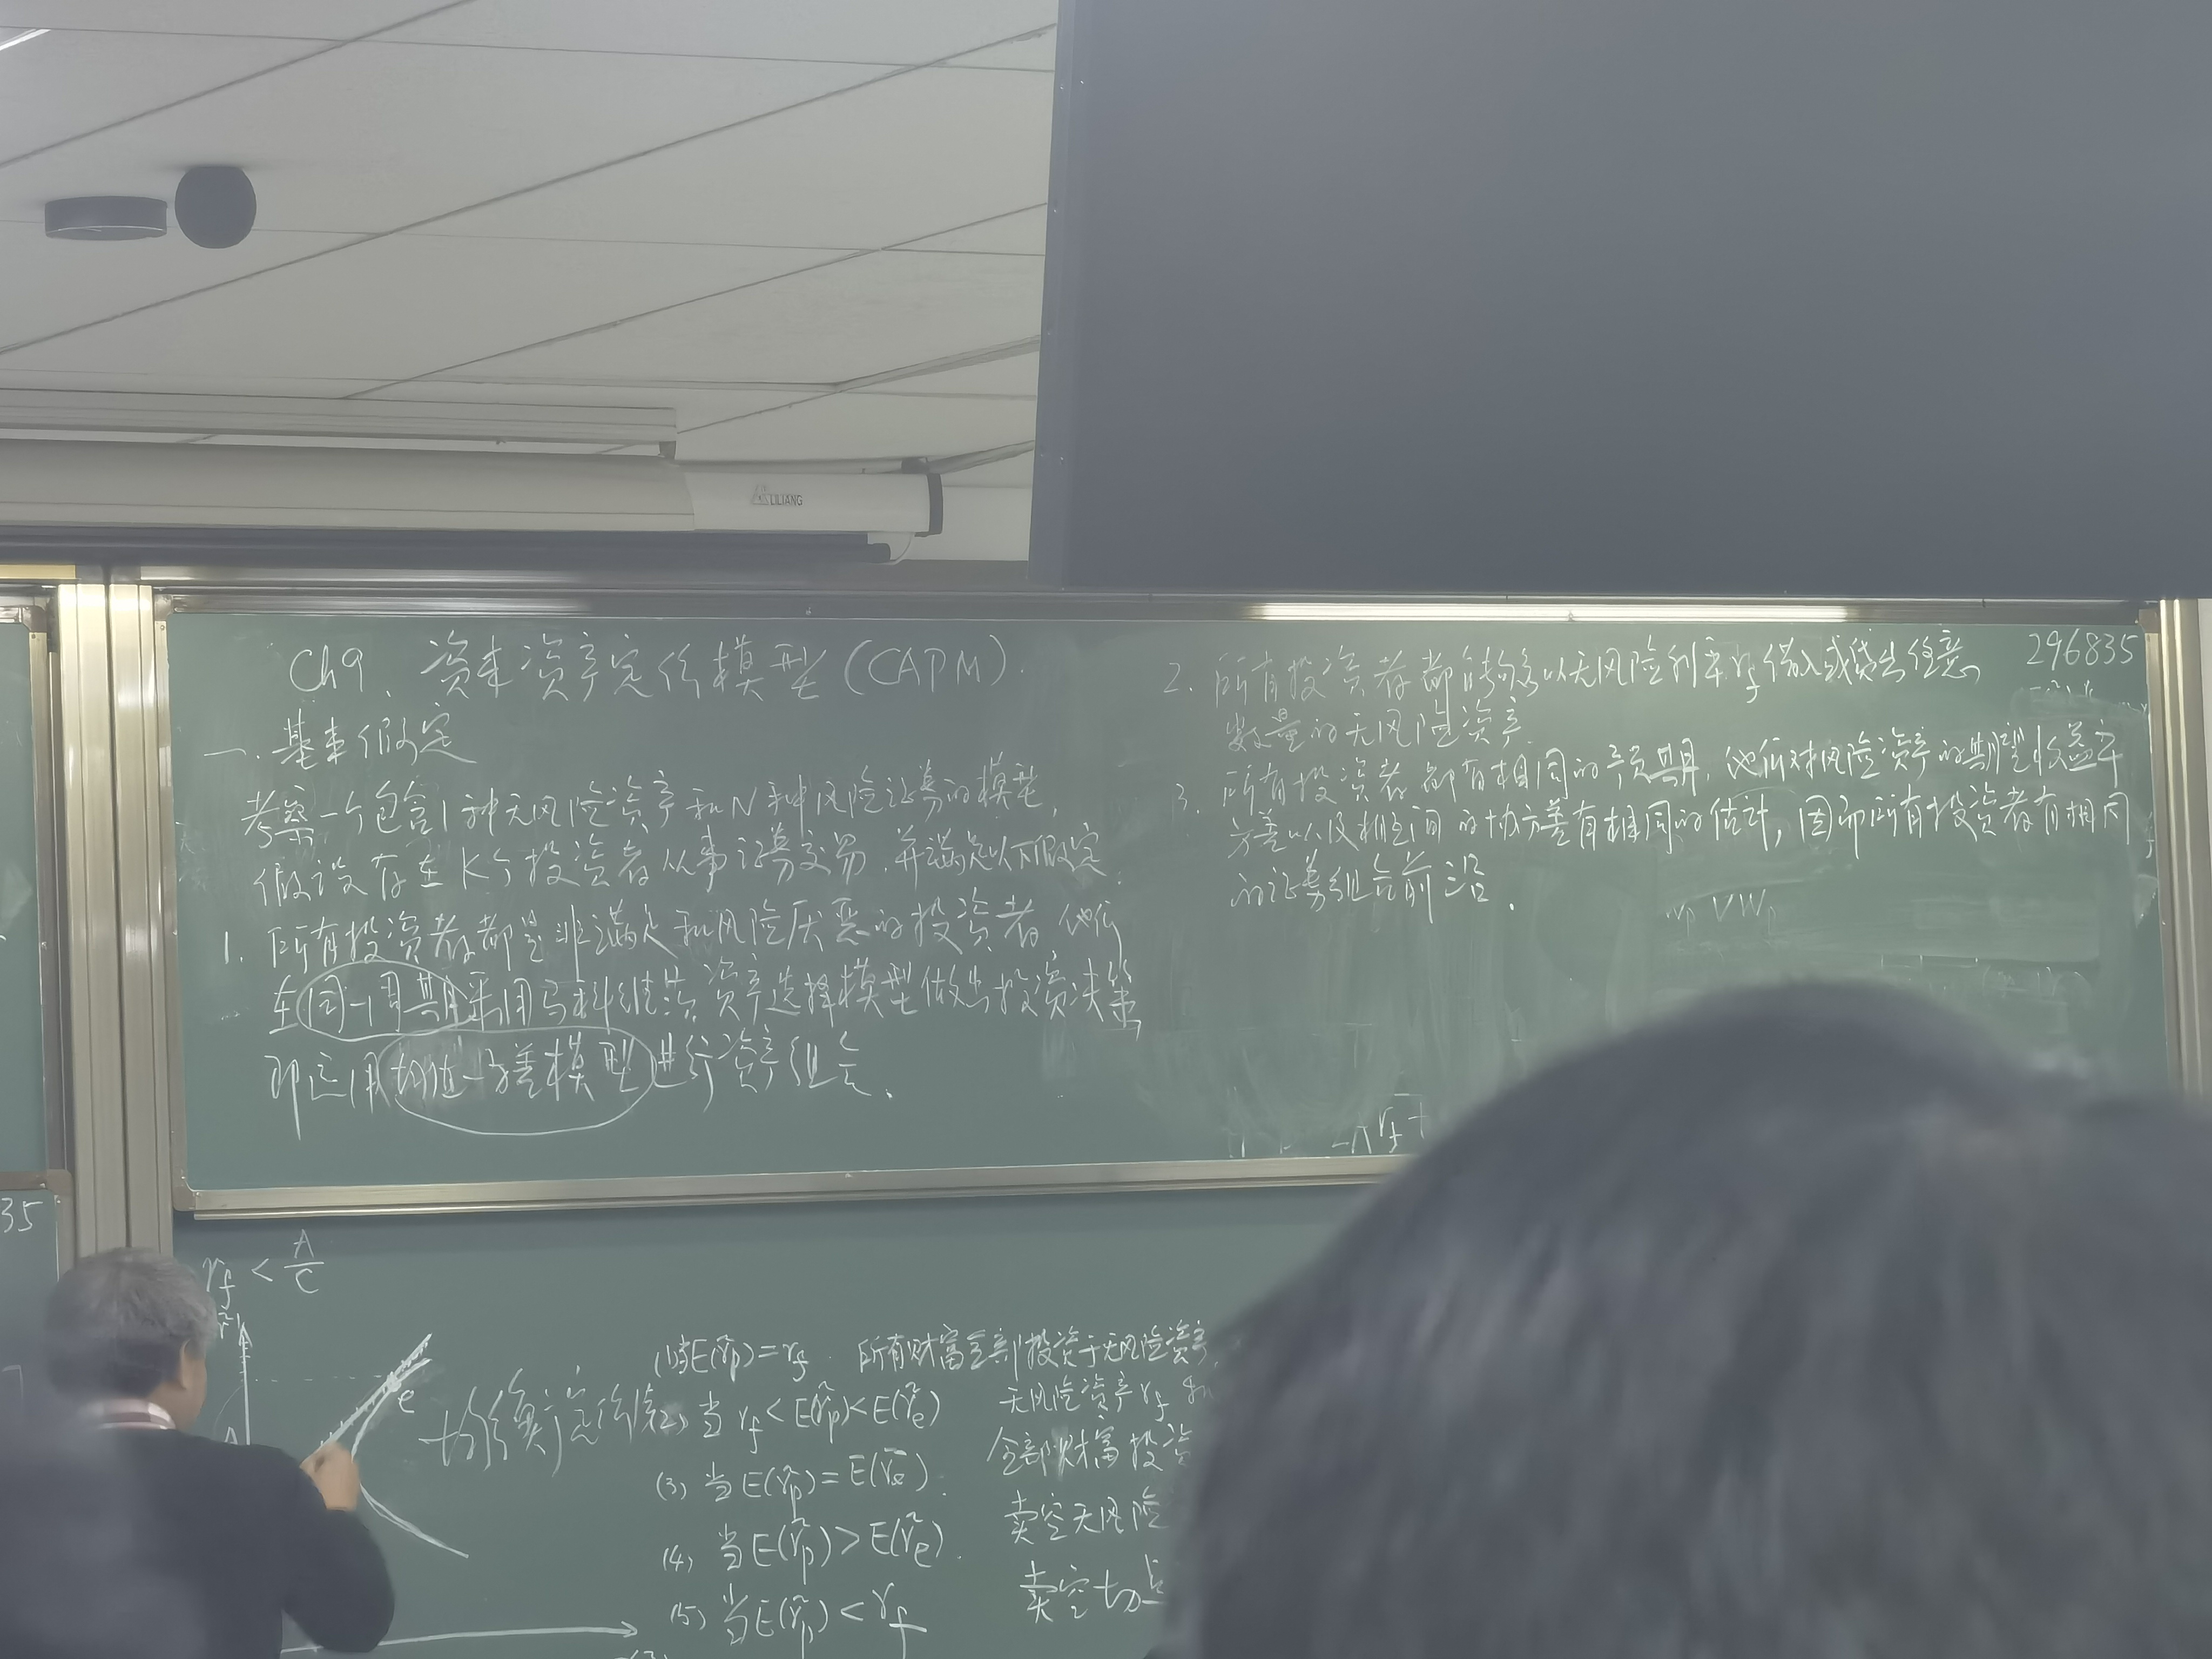 LILIANG
Ch9. 资本资产定价模型(CAPM)
一. 基本假定
考察一个包含1种无风险资产和N种风险证券的模型,
假设存在K个投资者从事证券交易,并满足以下假定:
1. 所有投资者都是非满足和风险厌恶的投资者,他们
在同一周期采用马科维茨资产选择模型做出投资决策,
即运用均值-方差模型进行资产组合.
2. 所有投资者都能够以无风险利率rf借入或贷出任意
数量的无风险资产.
3. 所有投资者都有相同的预期,他们对风险资产的期望收益率
方差以及相互间的协方差有相同的估计,因而所有投资者有相同
的证券组合前沿.
296835
35
rf < A/C
e
(1) 当E(r̃p)=rf. 所有财富全部投资于无风险资产,
(2) 当 rf < E(r̃p) < E(r̃e) 无风险资产rf 和
(3) 当 E(r̃p) = E(r̃e). 全部财富投资
(4) 当 E(r̃p) > E(r̃e). 卖空无风险
(5) 当 E(r̃p) < rf 卖空切点